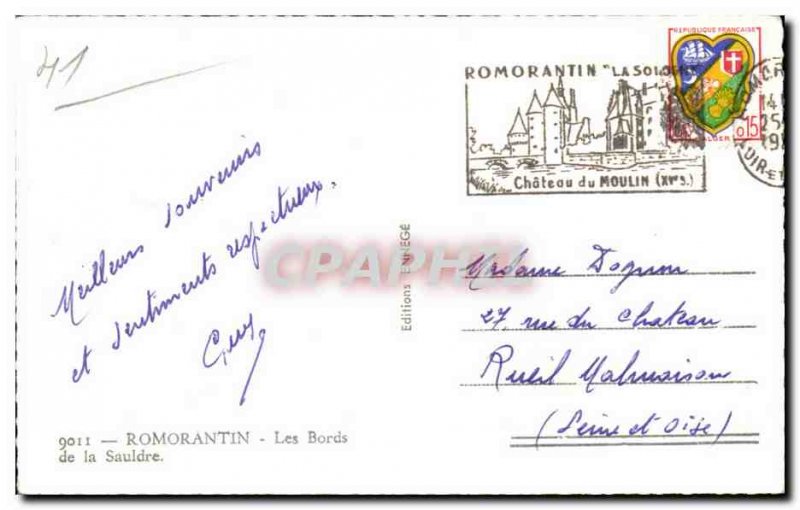 41
ROMORANTIN "LA SOLOGNE"
Château du MOULIN (XVe S.)
REPUBLIQUE FRANÇAISE
0,15
ALGER
25
Meilleurs souvenirs
et sentiments respectueux.
Guy
Editions ENNEGÉ
Madame
27, rue du Chateau
Rueil Malmaison
(Seine et Oise)
9011 — ROMORANTIN - Les Bords
de la Sauldre.
CPAPHIL